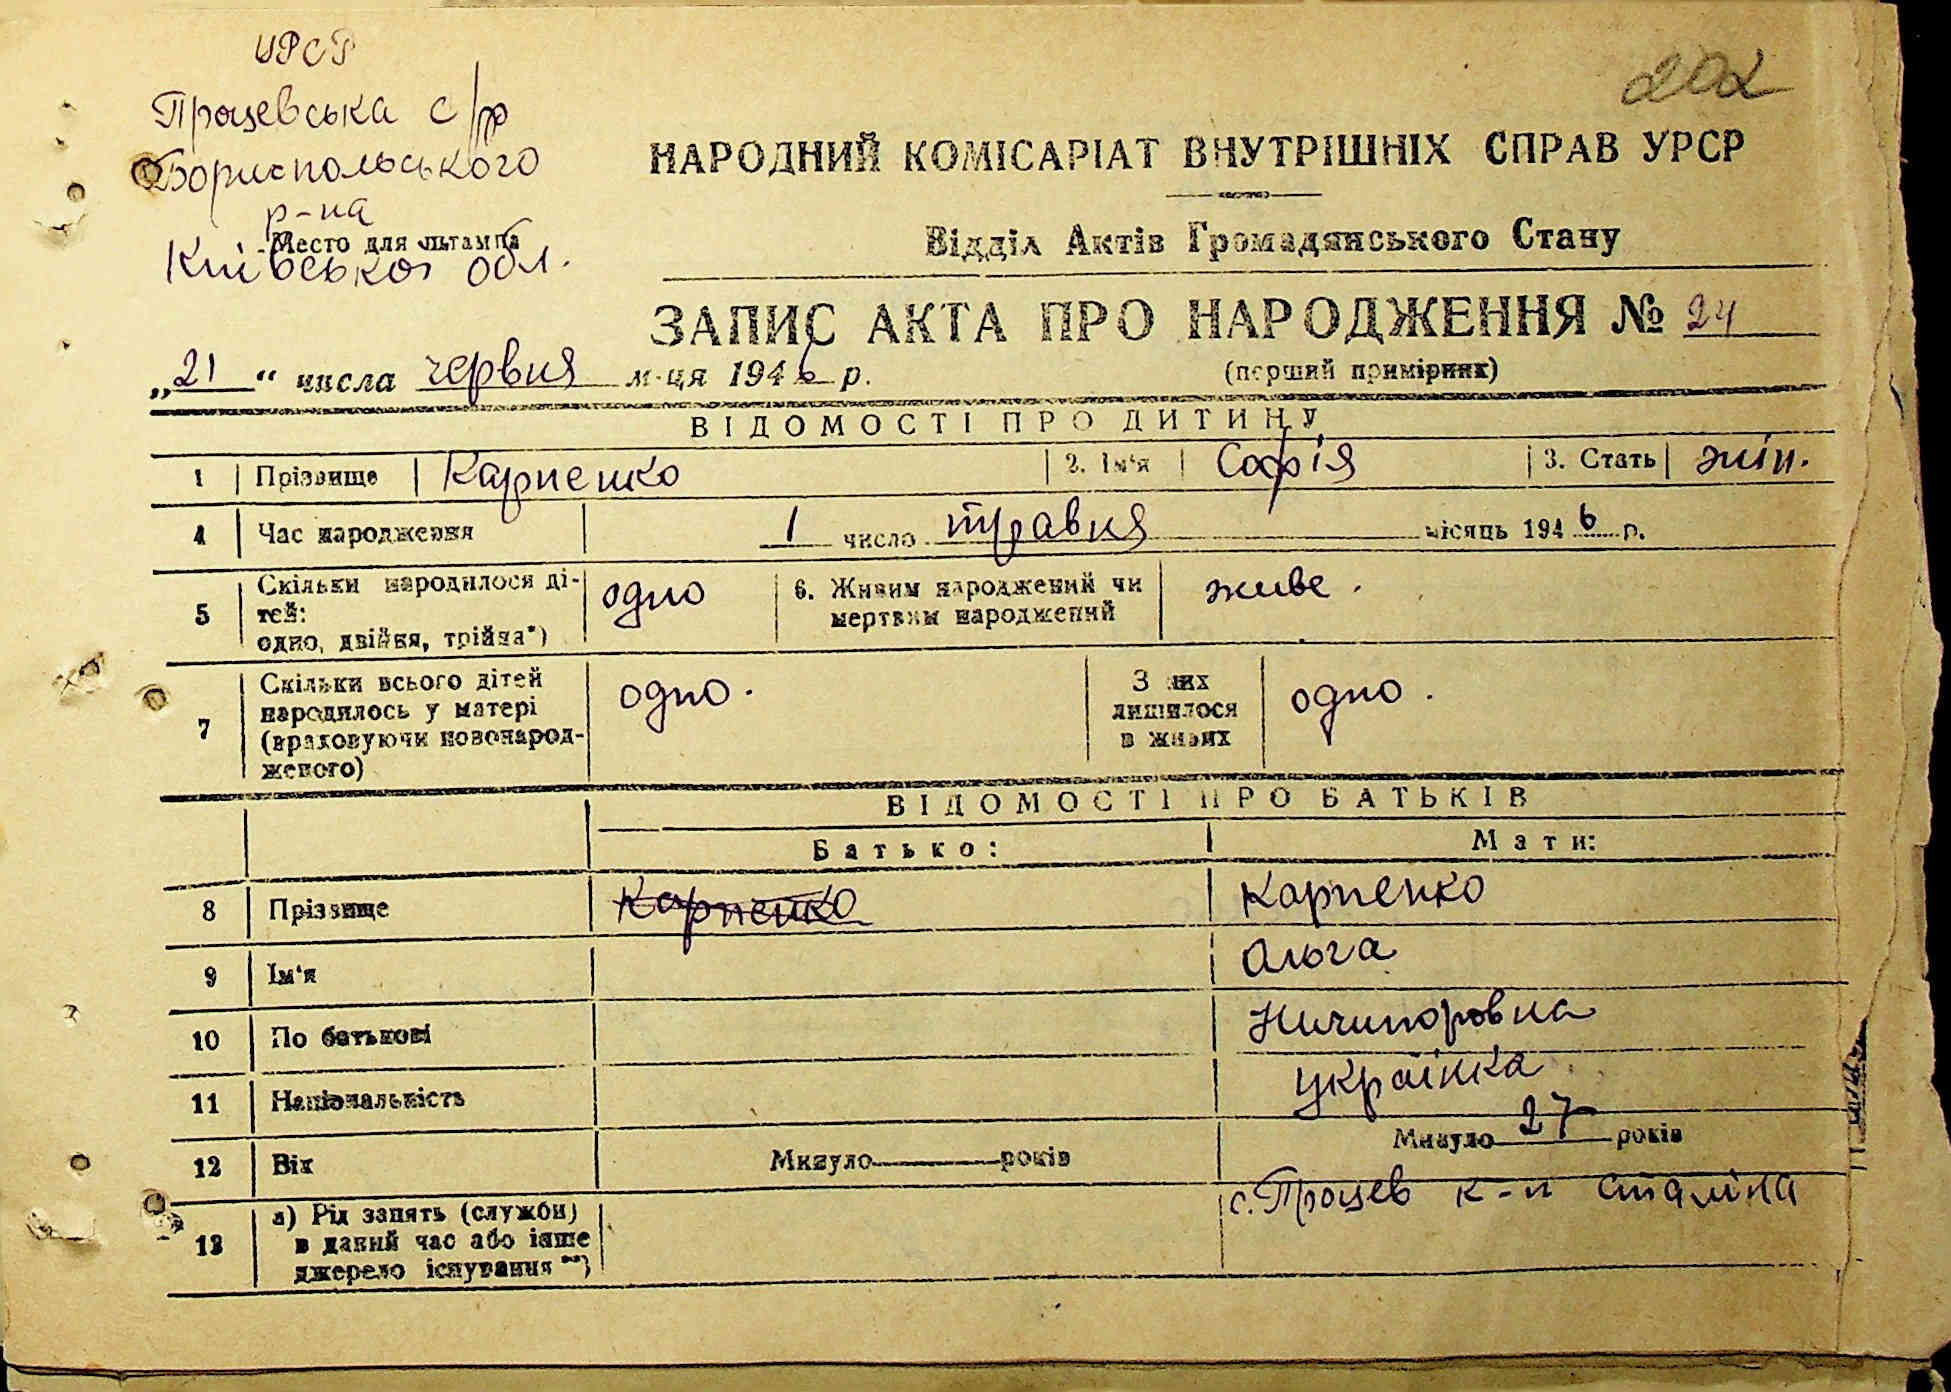 УРСР
202
Процевська с/р
Бориспольського
р-на
Место для штампа
Київської обл.
НАРОДНИЙ КОМІСАРІАТ ВНУТРІШНІХ СПРАВ УРСР
Відділ Актів Громадянського Стану
ЗАПИС АКТА ПРО НАРОДЖЕННЯ № 24
(перший примірник)
„21“ числа червня м-ця 1946 р.
ВІДОМОСТІ ПРО ДИТИНУ
1 Прізвище Карпенко 2. Ім'я Софія 3. Стать жін.
4 Час народження 1 число травня місяць 1946 р.
5 Скільки народилося ді-
тей:
одно, двійня, трійня*) одно 6. Живим народжений чи
мертвим народжений живе.
7 Скільки всього дітей
народилось у матері
(враховуючи новонарод-
женого) одно. З них
лишилося
в живих одно.
ВІДОМОСТІ ПРО БАТЬКІВ
Батько: Мати:
8 Прізвище Карпенко Карпенко
9 Ім'я Ольга
10 По батькові Ничипоровна
11 Національність українка
12 Вік Минуло років Минуло 27 років
13 а) Рід занять (служби)
в даний час або інше
джерело існування **) с. Процев к-п Сталіна